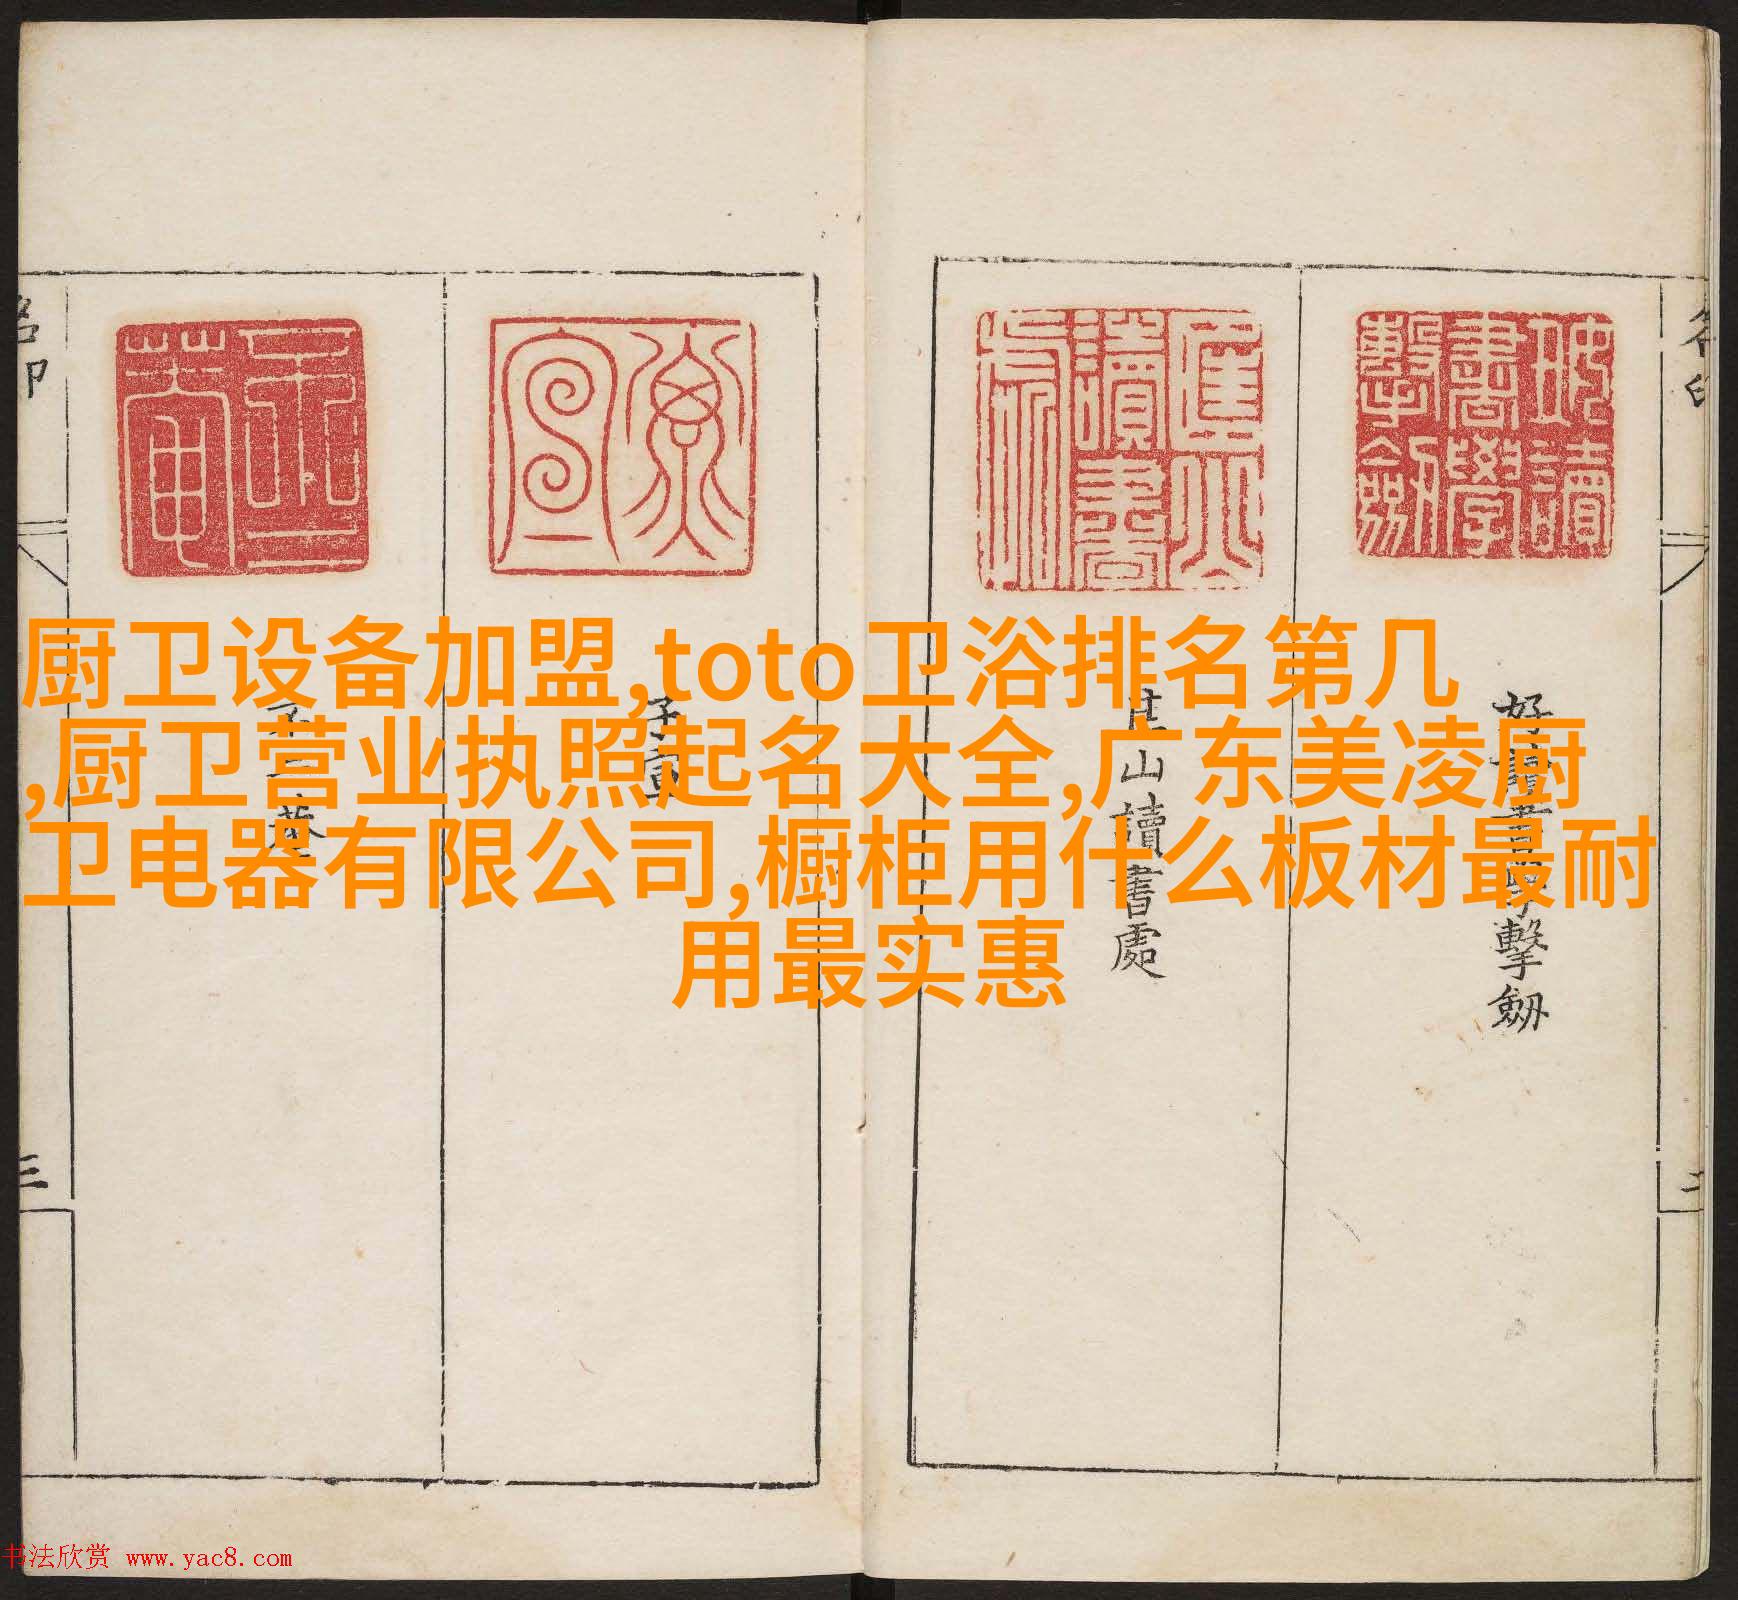 厨卫设备加盟,toto卫浴排名第几
,厨卫营业执照起名大全,广东美凌厨
卫电器有限公司,橱柜用什么板材最耐
用最实惠
好讀書學擊劒
匡山讀書處
名印
三
书法欣赏 www.yac8.com